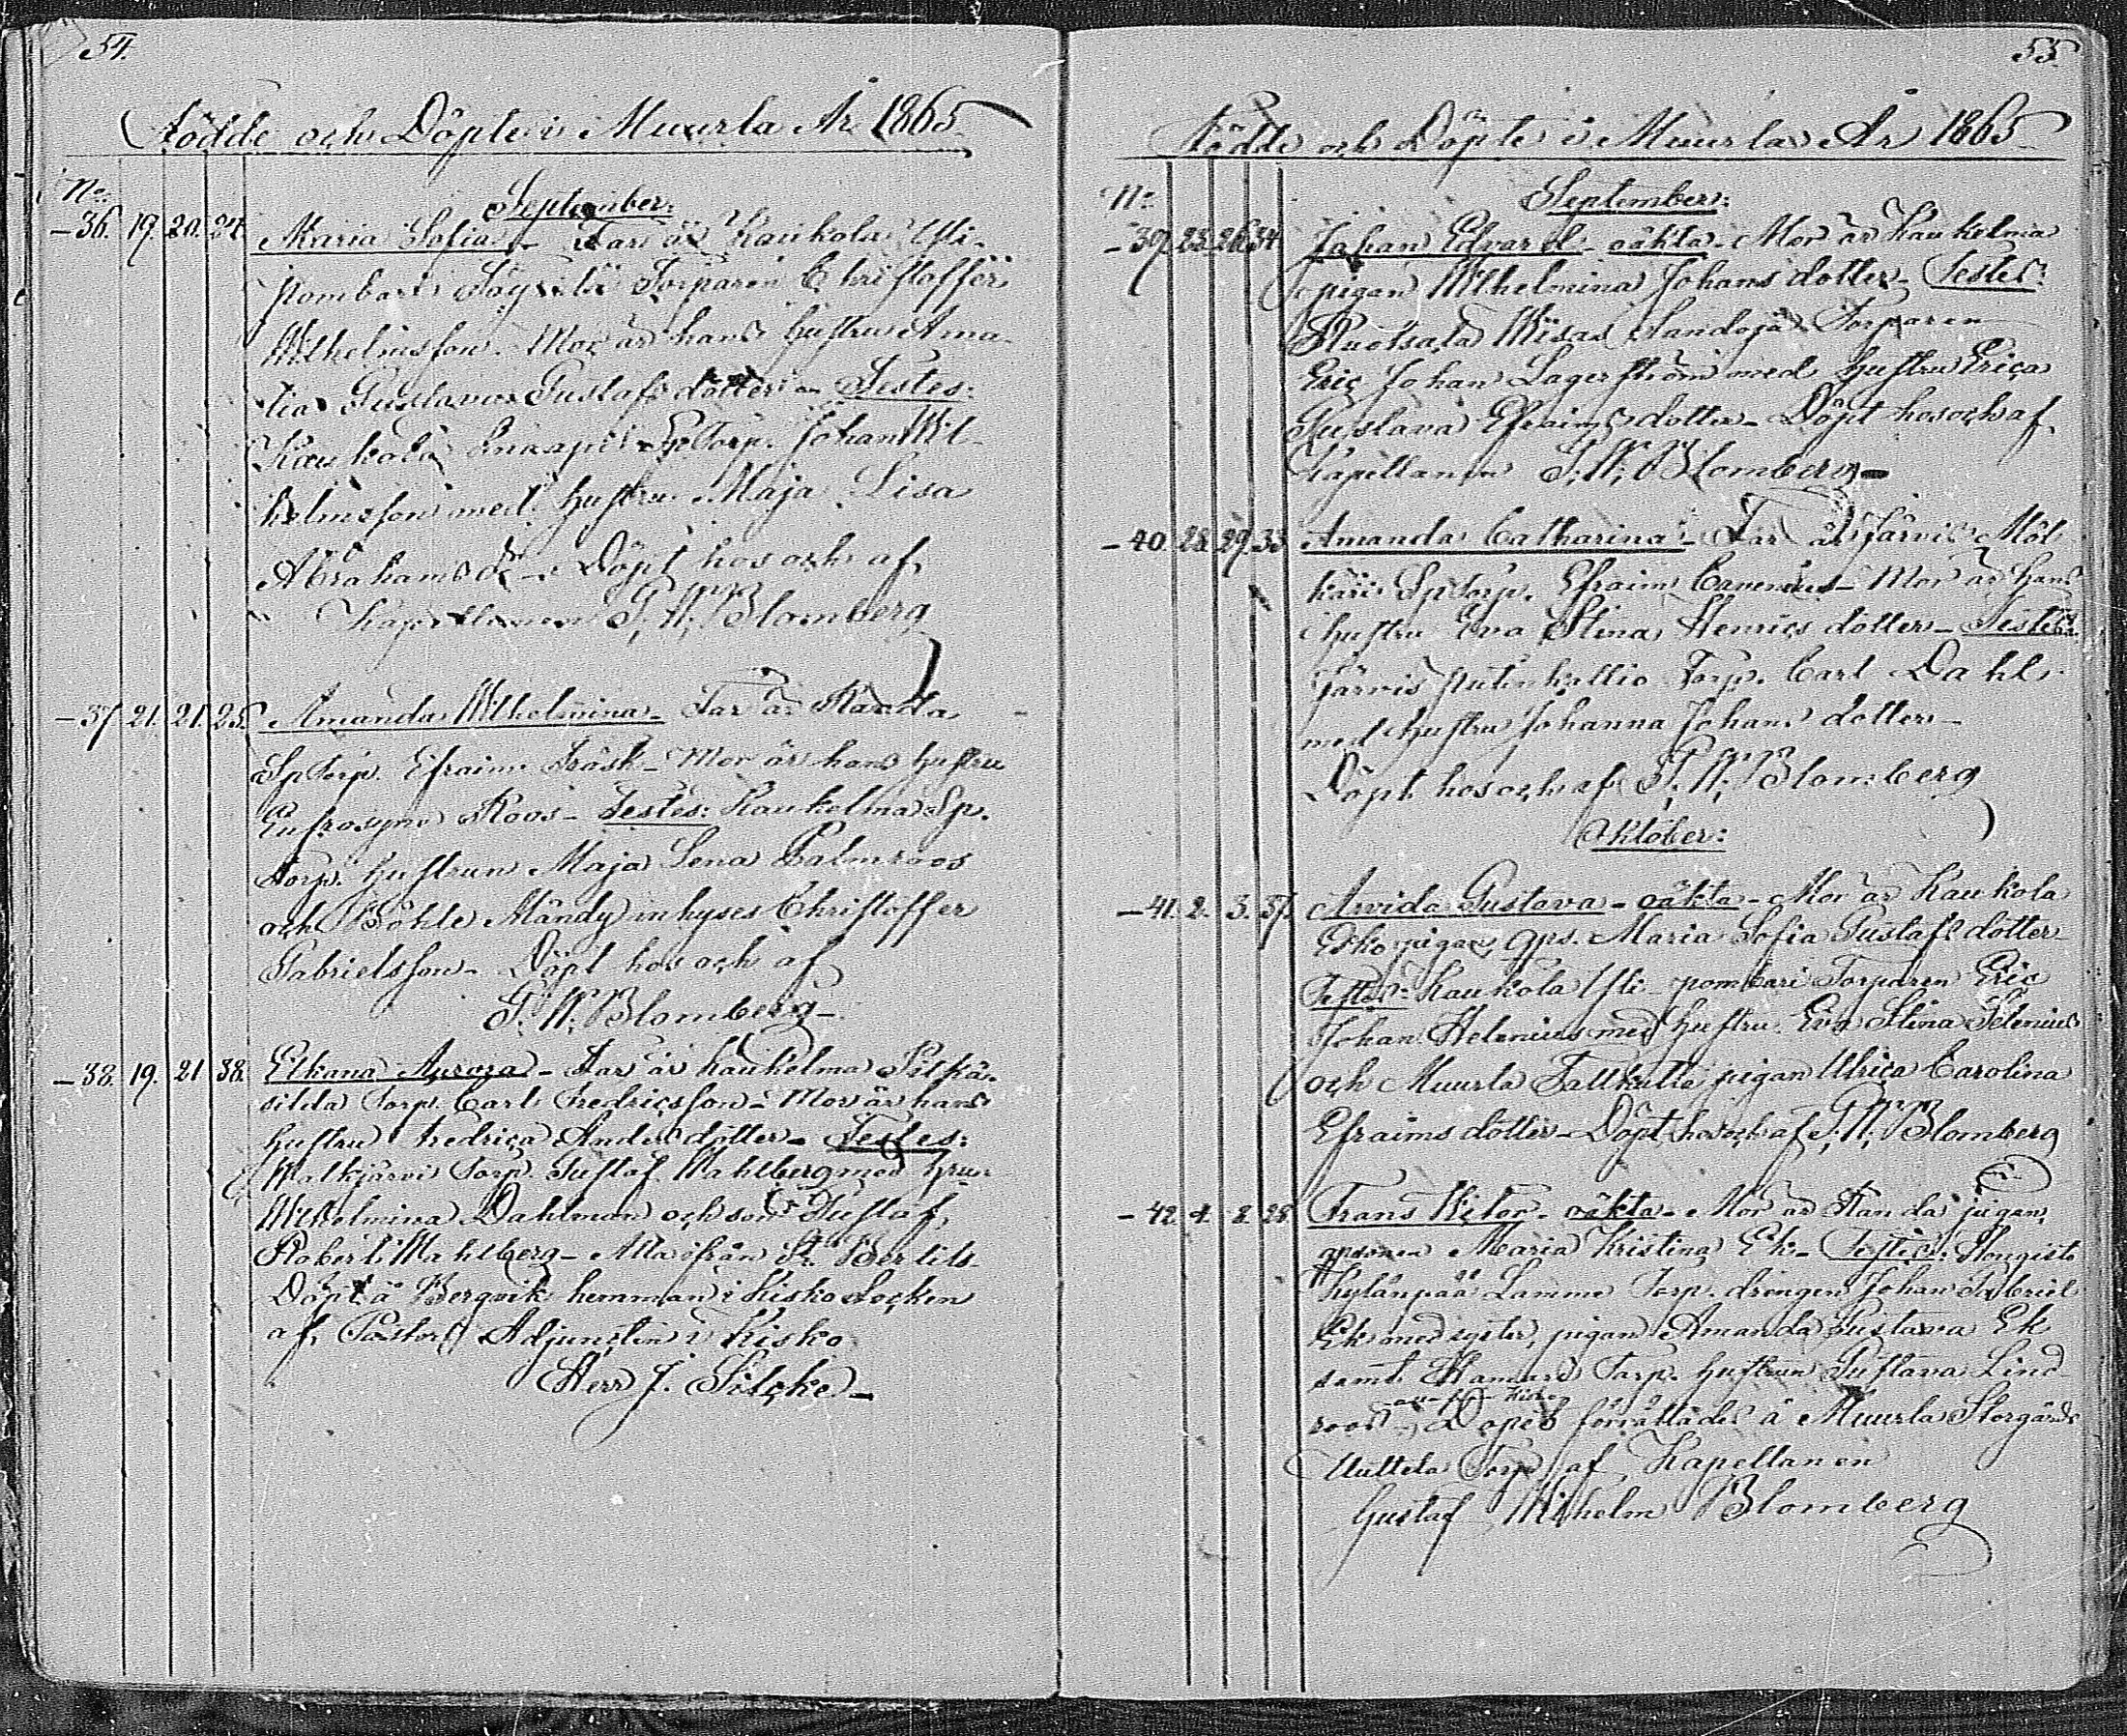 54.
Födde och Döpte i Muurla År 1865
No.
September:
-36. 19. 20. 24. Maria Sofia - Far är Kaukola Yli-
pombari Torparen Christoffer
Wilhelmsson. Mor är hans hustru Ama-
lia Gustava Gustafsdotter - Testes:
Kaukola Knaapi SpTorp. Johan Wil-
helmsson med hustru Maja Lisa
Abrahamsdr - Döpt hos och af
Kapellanen G. W. Blomberg
-37. 21. 21. 25. Amanda Wilhelmina - Far är Kaada
SpTorp. Efraim Träsk - Mor är hans hustru
Eufrosyne Roos - Testes: Kaukelma Sp.
Torp. hustrun Maja Lena Palmroos
och Böhle Mändy inhyses Christoffer
Gabrielsson - Döpt hos och af
G. W. Blomberg -
-38. 19. 21. 38. Elkana Aurora - Far är Kaukelma Pitkä-
silda Torp. Carl Fredricsson - Mor är hans
hustru Fredrica Andersdotter - Testes:
Walkjärvi Torp. Gustaf Wahlberg med hrun
Wilhelmina Dahlman och son Gustaf
Robert Wahlberg - Alla ifrån St. Bertils
Döpt å Bergvik hemman i Kisko Socken
af Pastors Adjuncten i Kisko
Herr J. Silcke -
55.
Födde och Döpte i Muurla År 1865
No.
September:
-39. 25. 26. 34. Johan Edvard - oäkta - Mor är Kaukelma
pigan Wilhelmina Johansdotter - Testes:
Ruotsala Wisas Sandoja Torparen
Eric Johan Lagerström med hustru Erica
Gustava Efraimsdotter - Döpt hos och af
Kapellanen G. W. Blomberg -
-40. 28. 29. 33. Amanda Catharina - Far är Järvis Möl-
käri SpTorp. Efraim Cavenius - Mor är hans
hustru Eva Stina Henricsdotter - Testes:
Järvis Torp. Carl Dahl
med hustru Johanna Johansdotter -
Döpt hos och af G. W. Blomberg
Oktober:
-41. 2. 3. 37. Arvida Gustava - oäkta - Mor är Kaukola
Esko pigan qps. Maria Sofia Gustafsdotter -
Testes: Kaukola Yli-pombari Torparen Eric
Johan Helenius med hustru Eva Stina Selenius
och Muurla Tallkulla pigan Ulrica Carolina
Efraimsdotter - Döpt hos och af G. W. Blomberg
-42. 4. 8. 28. Frans Victor - oäkta - Mor är Kanda pigan
qpsonen Maria Kristina Ek - Testes: Hongisto
Kylänpää Lamme Torp. drengen Johan Gabriel
Ek med syster, pigan Amanda Gustava Ek
samt Hamari Torp. hustrun Gustava Lind-
roos - Dopet förrättades å Muurla Storgårds
Uuttela Torp af Kapellanen
Gustaf Wilhelm Blomberg